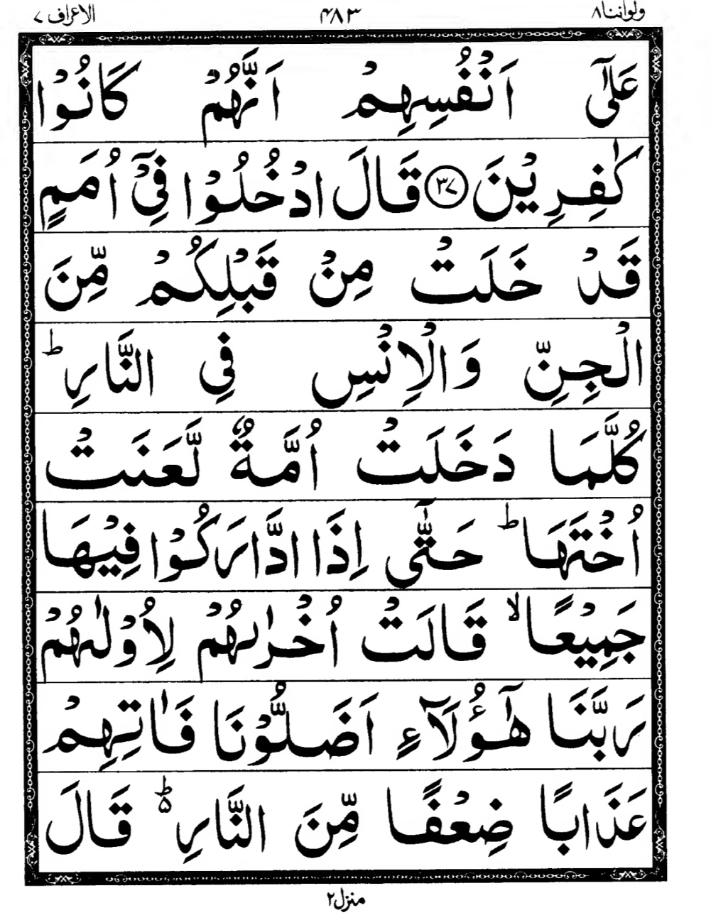 ولواننا ۸ ۴۸۳ الاعراف ۷
عَلٰٓى اَنْفُسِهِمْ اَنَّهُمْ كَانُوْا
كٰفِرِيْنَ ۳۷ قَالَ ادْخُلُوْا فِيْٓ اُمَمٍ
قَدْ خَلَتْ مِنْ قَبْلِكُمْ مِّنَ
الْجِنِّ وَالْاِنْسِ فِي النَّارِ ؕ
كُلَّمَا دَخَلَتْ اُمَّةٌ لَّعَنَتْ
اُخْتَهَا ؕ حَتّٰٓى اِذَا ادَّارَكُوْا فِيْهَا
جَمِيْعًا ۙ قَالَتْ اُخْرٰىهُمْ لِاُوْلٰىهُمْ
رَبَّنَا هٰٓؤُلَآءِ اَضَلُّوْنَا فَاٰتِهِمْ
عَذَابًا ضِعْفًا مِّنَ النَّارِ ؕ۵ قَالَ
منزل ۲